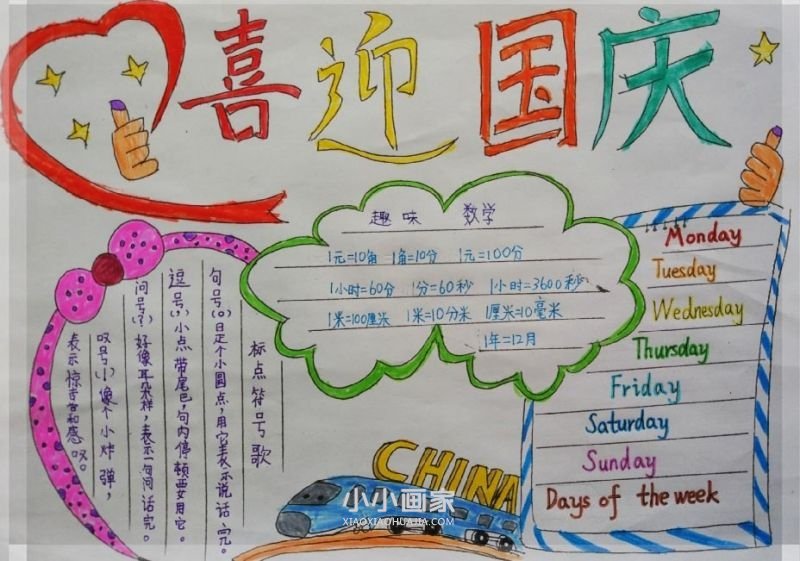 喜迎国庆
趣味 数学
1元=10角 1角=10分 1元=100分
1小时=60分 1分=60秒 1小时=3600秒
1米=100厘米 1米=10分米 1厘米=10毫米
1年=12月
标点符号歌
句号(。)是个小圆点,用它表示说话完。
逗号(,)小点带尾巴,句内停顿要用它。
问号(?)好像耳朵样,表示一句问话完。
叹号(!)像个小炸弹,
表示惊喜和感叹。
Monday
Tuesday
Wednesday
Thursday
Friday
Saturday
Sunday
Days of the week
CHINA
小小画家
XIAOXIAOHUAJIA.COM